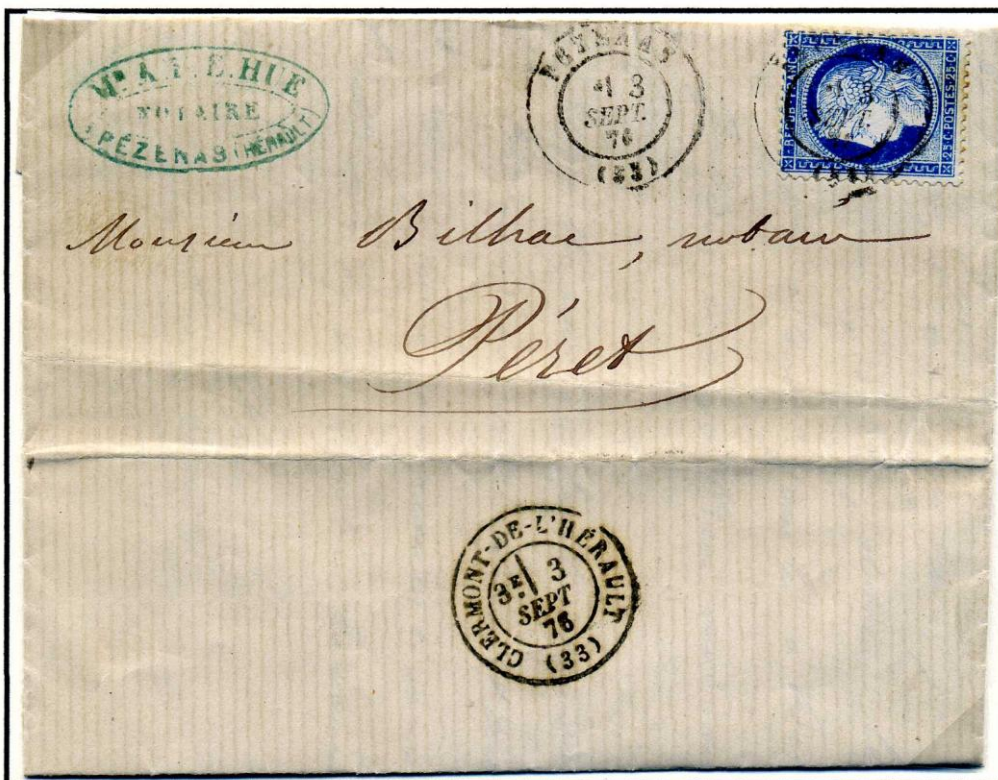 NOTAIRE
PÉZENAS (HÉRAULT)
PEZENAS
3
SEPT.
76
(33)
REPUB. FRANC.
25 C. POSTES 25 C.
Monsieur Bilhac, notaire
Péret
CLERMONT-DE-L'HÉRAULT
3E 3
SEPT
76
(33)